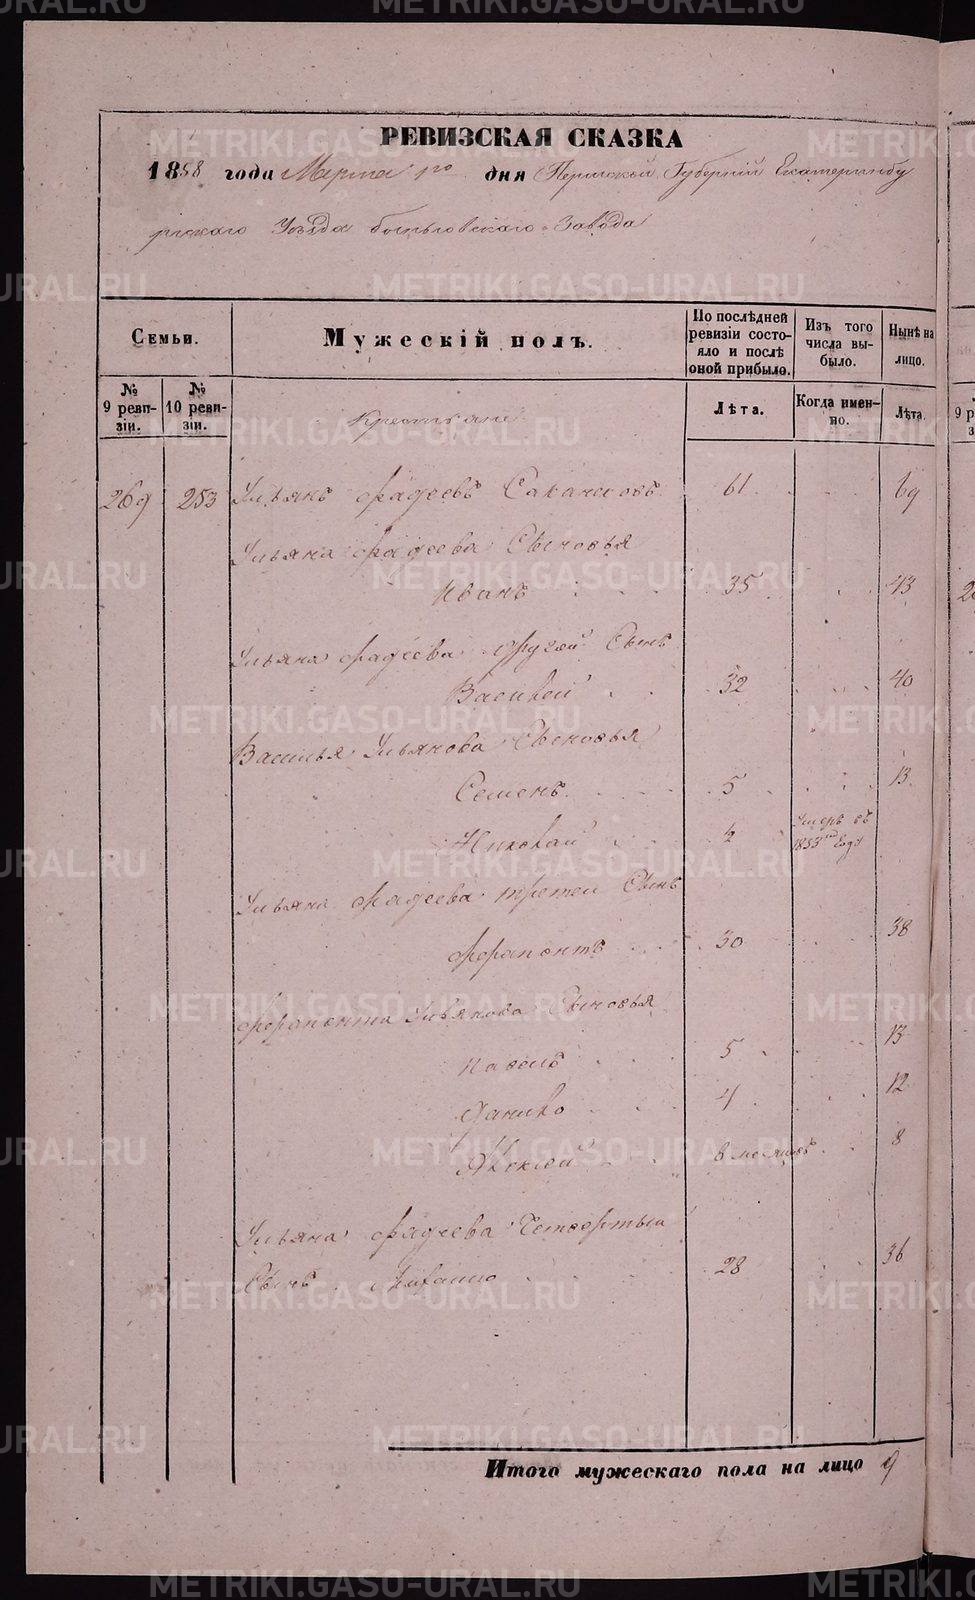 РЕВИЗСКАЯ СКАЗКА
1858 года Марта 1го дня Пермской Губернiй Екатеринбу
ргскаго Уѣзда Завода
Семьи.
Мужескiй полъ.
По послѣдней ревизiи состояло и послѣ оной прибыло.
Изъ того числа выбыло.
Нынѣ на лицо.
№ 9 ревизiи.
№ 10 ревизiи.
Крестьяне
Лѣта.
Когда именно.
Лѣта.
269 253 Ульянъ Фадеевъ 61 69
Ульяна Фадеева Сыновья
Иванъ 35 43
Ульяна Фадеева другой Сынъ
Василей 32 40
Василья Ульянова Сыновья
Семенъ 5 13
Николай Умеръ въ
1853мъ Году
Ульяна Фадеева третей Сынъ
Ферапонтъ 30 38
Ферапонта Ульянова Сыновья
Павелъ 5 13
Данило 4 12
Алексей 8
Ульяна Фадеева Четвертый
Сынъ 28 36
Итого мужескаго пола на лицо 9
METRIKI.GASO-URAL.RU